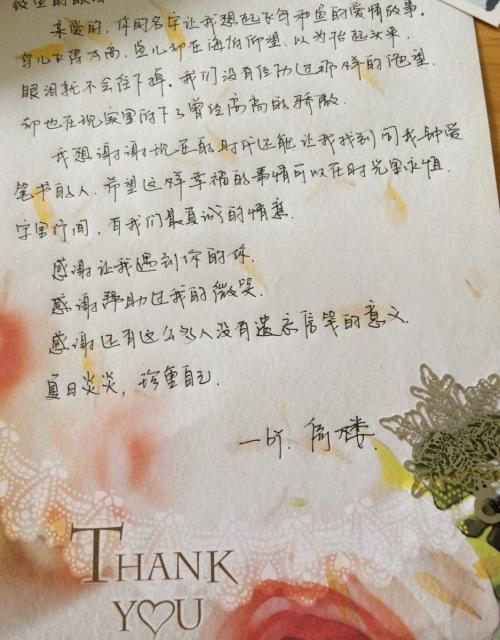 亲爱的，你的名字让我想起飞鸟和鱼的爱情故事。
鸟儿飞得太高，鱼儿却在海底仰望，以为抬起头来，
眼泪就不会往下掉。我们没有经历过那样的绝望，
却也在现实里俯下了曾经高高的骄傲。
我想谢谢现在的时代还能让我找到同我钟爱
笔书的人，希望这样幸福的事情可以在时光里永恒，
字里行间，有我们最真诚的情意。
感谢让我遇到你的你，
感谢帮助过我的微笑，
感谢还有这么多人没有遗忘信笺的意义。
夏日炎炎，珍重自己。
THANK
YOU